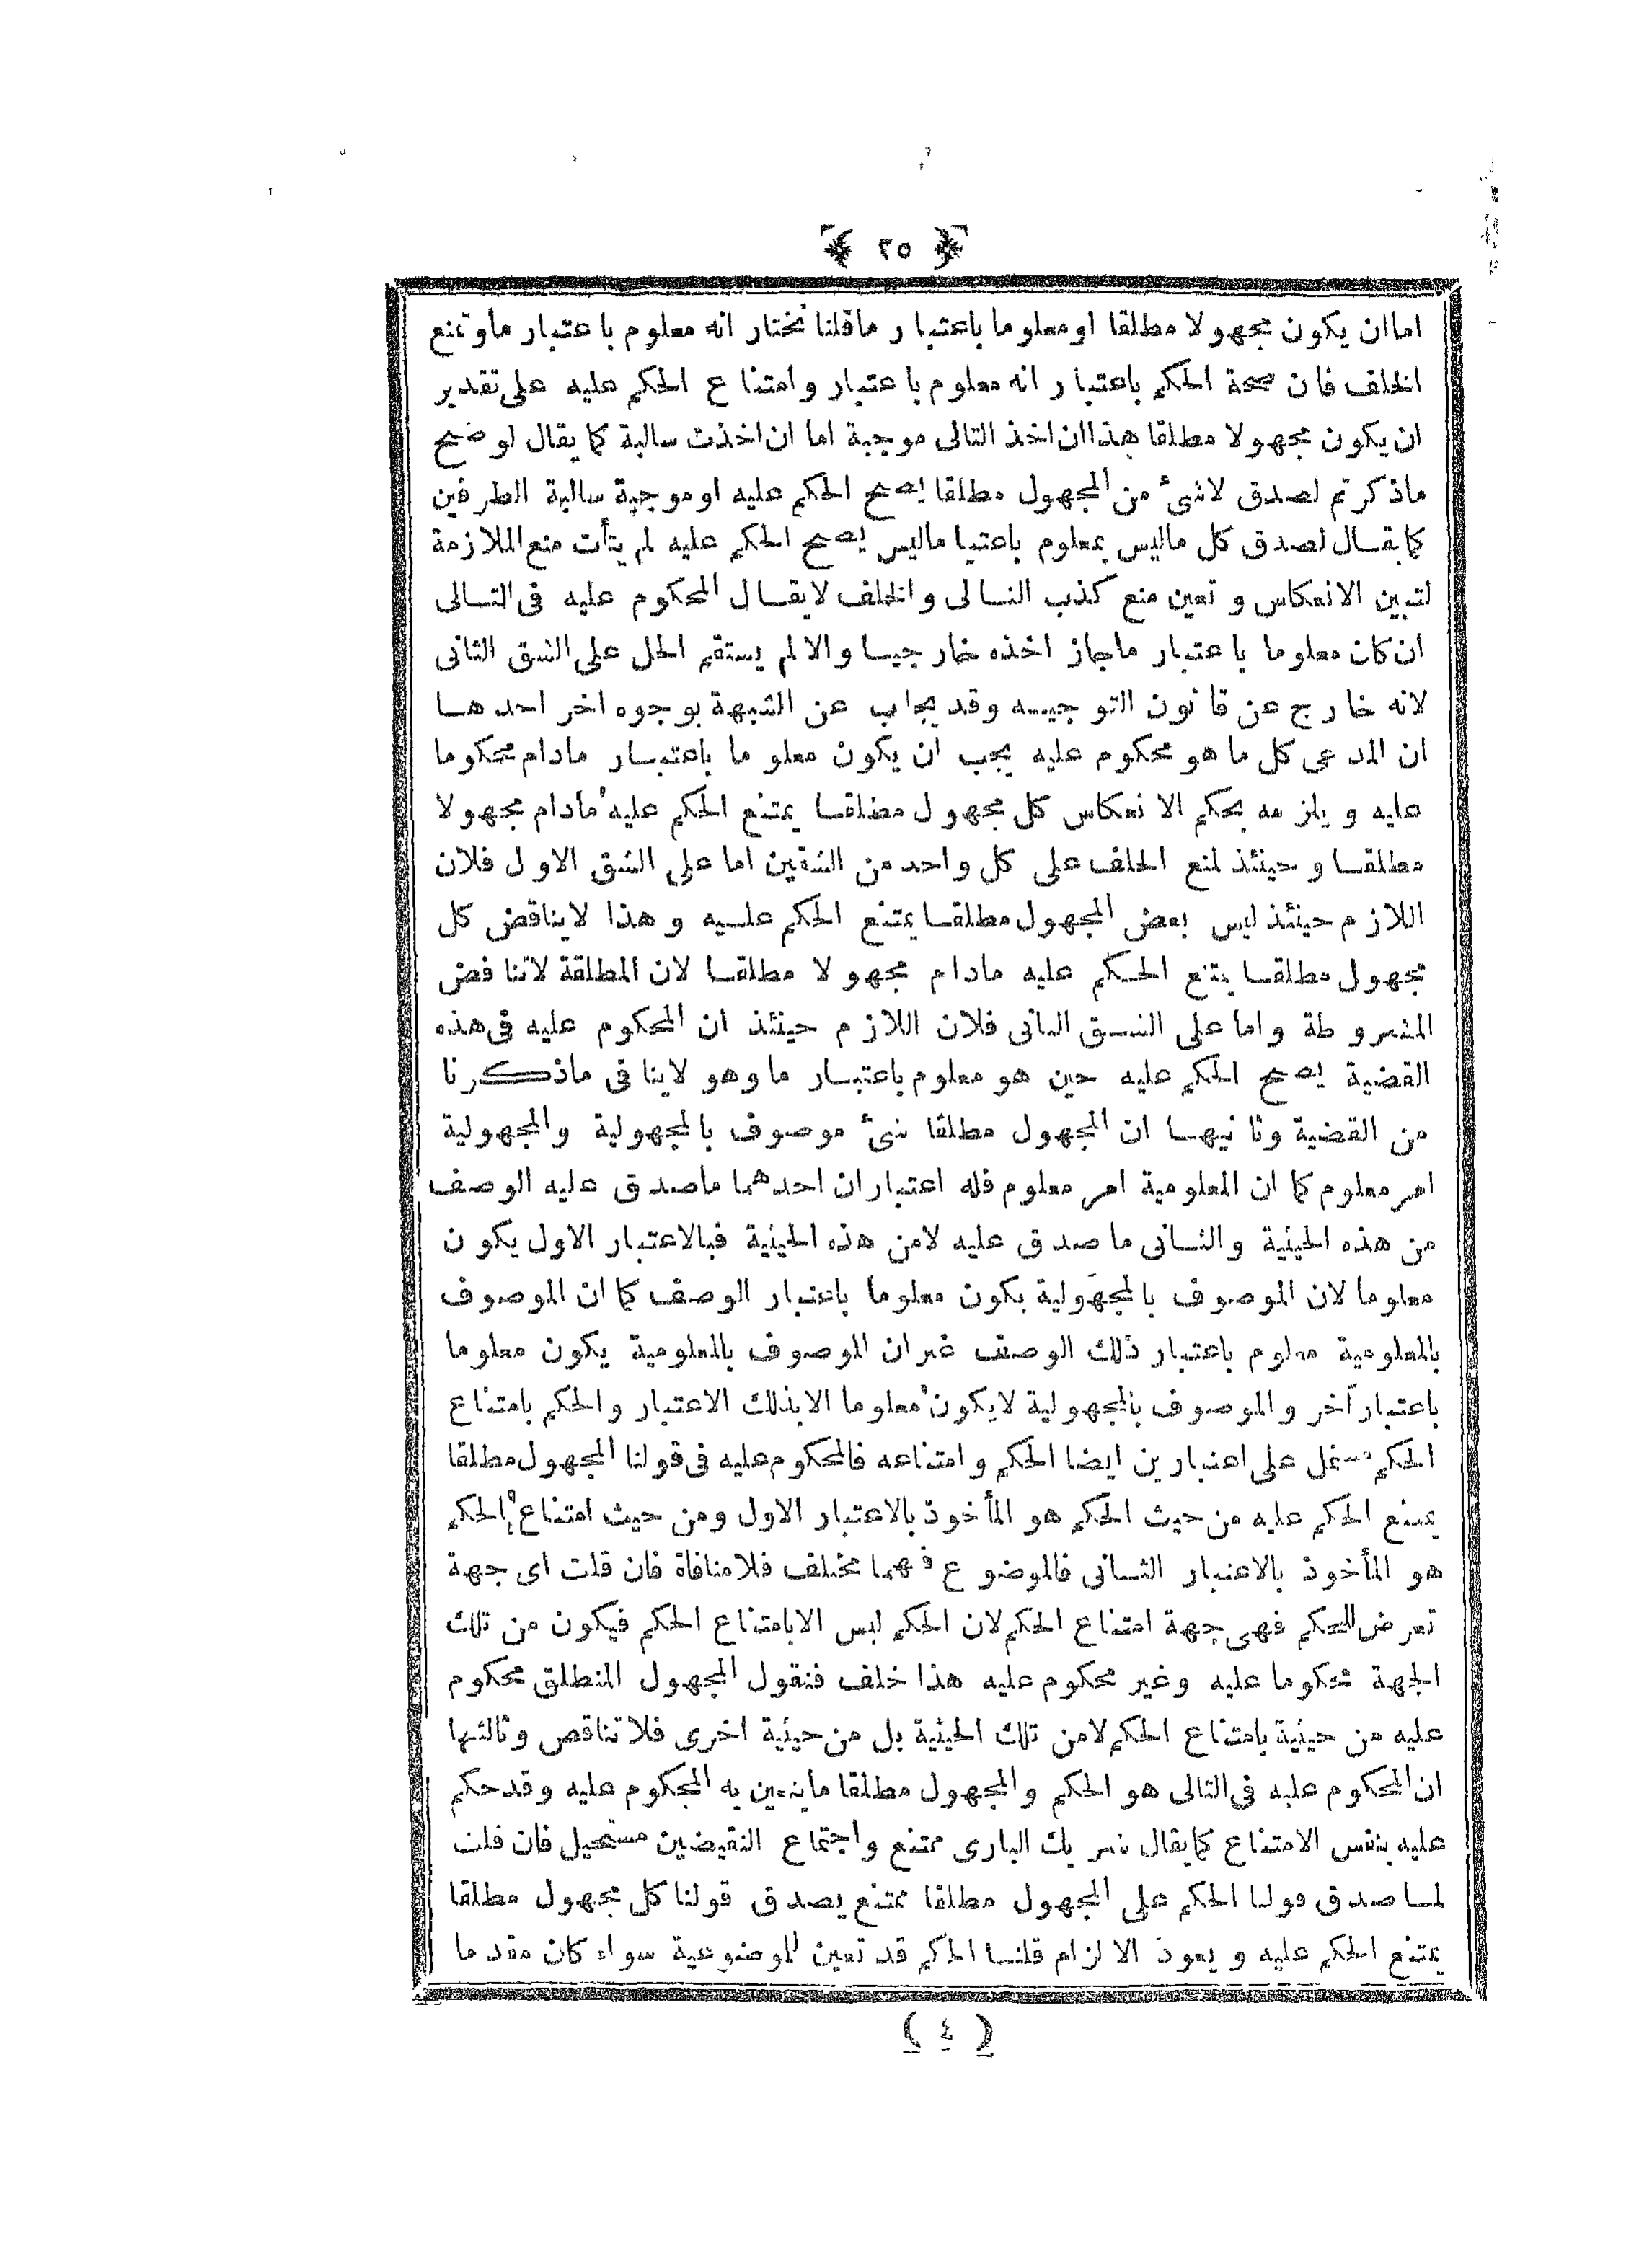 ٢٥
اما ان يكون مجهولا مطلقا او معلوما باعتبار ما قلنا نختار انه معلوم باعتبار ما ونمنع
الخلف فان صحة الحكم باعتبار انه معلوم باعتبار وامتناع الحكم عليه على تقدير
ان يكون مجهولا مطلقا هذا ان اخذ التالى موجبة اما ان اخذت سالبة كما يقال لو صح
ما ذكرتم لصدق لا شئ من المجهول مطلقا يصح الحكم عليه او موجبة سالبة الطرفين
كما يقال لصدق كل ماليس بمعلوم باعتبا ماليس يصح الحكم عليه لم يتأت منع الملازمة
لتبين الانعكاس وتعين منع كذب التالى والخلف لا يقال المحكوم عليه فى التالى
ان كان معلوما باعتبار ما جاز اخذه خارجيا والا لم يستقم الحل على الشق الثانى
لانه خارج عن قانون التوجيه وقد يجاب عن الشبهة بوجوه اخر احدها
ان المدعى كل ما هو محكوم عليه يجب ان يكون معلوما باعتبار مادام محكوما
عليه ويلزمه بحكم الانعكاس كل مجهول مطلقا يمتنع الحكم عليه مادام مجهولا
مطلقا وحينئذ نمنع الخلف على كل واحد من الشقين اما على الشق الاول فلان
اللازم حينئذ ليس بعض المجهول مطلقا يمتنع الحكم عليه وهذا لا يناقض كل
مجهول مطلقا يمتنع الحكم عليه مادام مجهولا مطلقا لان المطلقة لا تناقض
المشروطة واما على الشق الثانى فلان اللازم حينئذ ان المحكوم عليه فى هذه
القضية يصح الحكم عليه حين هو معلوم باعتبار ما وهو لا ينافى ما ذكرنا
من القضية وثانيها ان المجهول مطلقا شئ موصوف بالمجهولية والمجهولية
امر معلوم كما ان المعلومية امر معلوم فله اعتباران احدهما ما صدق عليه الوصف
من هذه الحيثية والثانى ما صدق عليه لا من هذه الحيثية فبالاعتبار الاول يكون
معلوما لان الموصوف بالمجهولية يكون معلوما باعتبار الوصف كما ان الموصوف
بالمعلومية معلوم باعتبار ذلك الوصف غير ان الموصوف بالمعلومية يكون معلوما
باعتبار آخر والموصوف بالمجهولية لا يكون معلوما الا بذلك الاعتبار والحكم بامتناع
الحكم مشتمل على اعتبارين ايضا الحكم وامتناعه فالمحكوم عليه فى قولنا المجهول مطلقا
يمتنع الحكم عليه من حيث الحكم هو المأخوذ بالاعتبار الاول ومن حيث امتناع الحكم
هو المأخوذ بالاعتبار الثانى فالموضوع فيهما مختلف فلا منافاة فان قلت اى جهة
تعرض للحكم فهى جهة امتناع الحكم لان الحكم ليس الا بامتناع الحكم فيكون من تلك
الجهة محكوما عليه وغير محكوم عليه هذا خلف فنقول المجهول المطلق محكوم
عليه من حيثية بامتناع الحكم لا من تلك الحيثية بل من حيثية اخرى فلا تناقض وثالثها
ان المحكوم عليه فى التالى هو الحكم والمجهول مطلقا ما يتعين به المحكوم عليه وقد حكم
عليه بنفس الامتناع كما يقال شريك البارى ممتنع واجتماع النقيضين مستحيل فان قلت
لما صدق قولنا الحكم على المجهول مطلقا ممتنع يصدق قولنا كل مجهول مطلقا
يمتنع الحكم عليه ويعود الالزام قلنا الحكم قد تعين للموضوعية سواء كان مقدما
( ٤ )